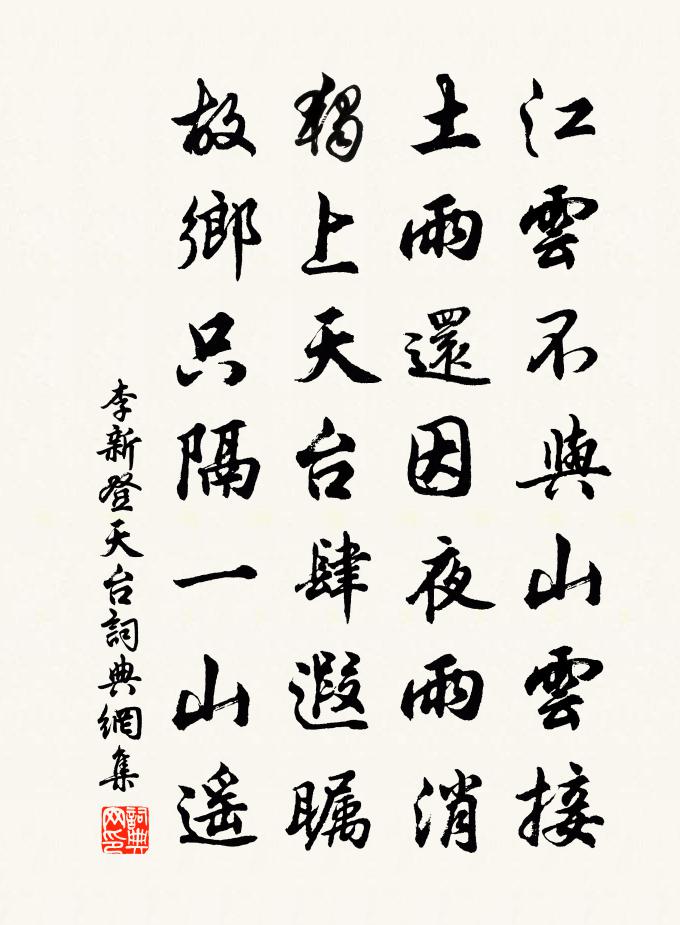 江雲不與山雲接
土雨還因夜雨消
獨上天台肆遐瞩
故鄉只隔一山遥
李新登天台詞典網集
詞典网印